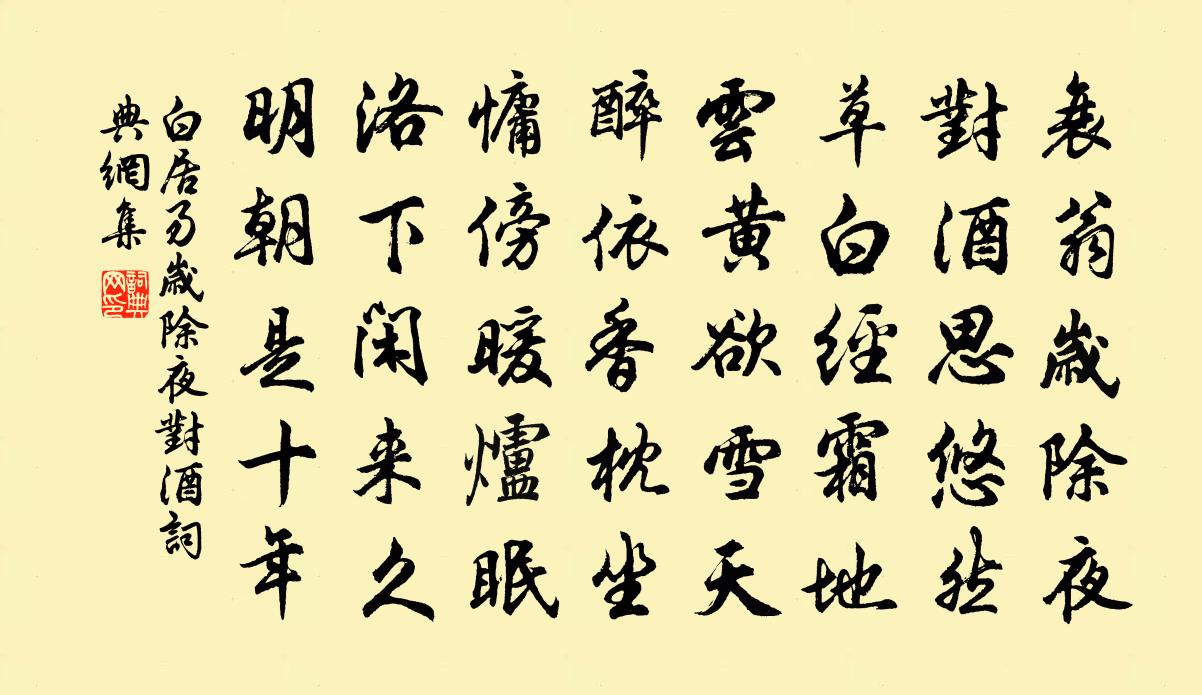 衰翁歲除夜
對酒思悠然
草白經霜地
雲黃欲雪天
醉依香枕坐
慵傍暖爐眠
洛下閑来久
明朝是十年
白居易歲除夜對酒詞
典網集
詞典
网印